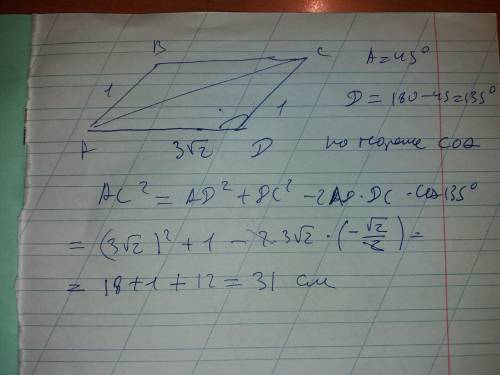 B C A = 45°
1 1 D = 180 - 45 = 135°
A 3√2 D по теореме cos
AC² = AD² + DC² - 2AD · DC · cos 135°
= (3√2)² + 1 - 2 · 3√2 · (-√2/2) =
= 18 + 1 + 12 = 31 см